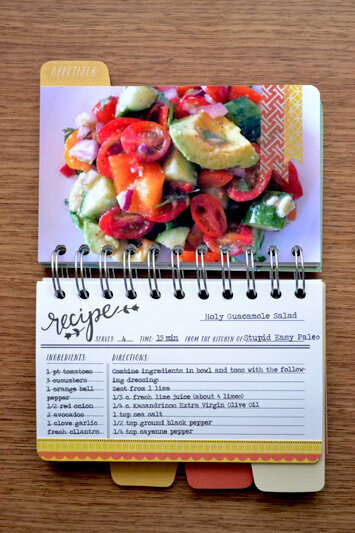 APPETIZER
recipe
Holy Guacamole Salad
SERVES: 4 TIME: 15 min FROM THE KITCHEN OF Stupid Easy Paleo
INGREDIENTS:
1 pt tomatoes
3 cucumbers
1 orange bell
pepper
1/2 red onion
2 avocados
1 clove garlic
fresh cilantro
DIRECTIONS:
Combine ingredients in bowl and toss with the follow-
ing dressing:
Zest from 1 lime
1/3 c. fresh lime juice (about 4 limes)
1/4 c. Kasandrinos Extra Virgin Olive Oil
1 tsp sea salt
1/2 tsp ground black pepper
1/4 tsp cayenne pepper